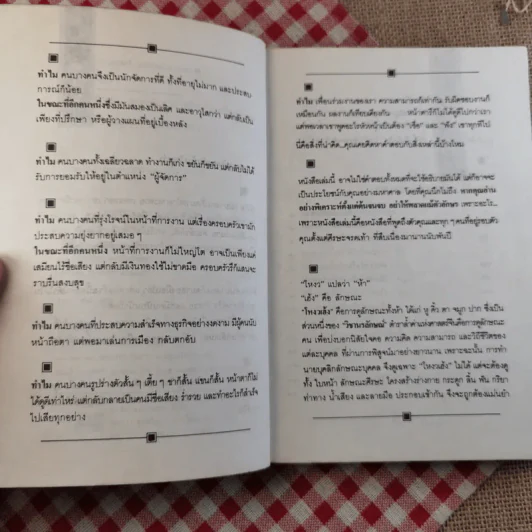 ทำไม คนบางคนจึงเป็นนักจัดการที่ดี ทั้งที่อายุไม่มาก และประสบ
การณ์ก็น้อย
ในขณะที่อีกคนหนึ่งซึ่งมีมันสมองเป็นเลิศ และอาวุโสกว่า แต่กลับเป็น
เพียงที่ปรึกษา หรือผู้วางแผนที่อยู่เบื้องหลัง
ทำไม คนบางคนทั้งเฉลียวฉลาด ทำงานก็เก่ง ขยันก็ขยัน แต่กลับไม่ได้
รับการยอมรับให้อยู่ในตำแหน่ง "ผู้จัดการ"
ทำไม คนบางคนที่รุ่งโรจน์ในหน้าที่การงาน แต่เรื่องครอบครัวเขามัก
ประสบความยุ่งยากอยู่เสมอ ๆ
ในขณะที่อีกคนหนึ่ง หน้าที่การงานก็ไม่ใหญ่โต อาจเป็นเพียงแค่
เสมียนไร้ชื่อเสียง แต่กลับมีเงินทองใช้ไม่ขาดมือ ครอบครัวรึก็แสนจะ
ราบรื่นสงบสุข
ทำไม คนบางคนที่ประสบความสำเร็จทางธุรกิจอย่างงดงาม มีผู้คนนับ
หน้าถือตา แต่พอมาเล่นการเมือง กลับตกอับ
ทำไม คนบางคนรูปร่างตัวสั้น ๆ เตี้ย ๆ ขาก็สั้น แขนก็สั้น หน้าตาก็ไม่
ได้ดูดีเท่าไหร่ แต่กลับกลายเป็นคนมีชื่อเสียง ร่ำรวย และทำอะไรก็สำเร็จ
ไปเสียทุกอย่าง
ทำไม เพื่อนร่วมงานของเรา ความสามารถก็เท่ากัน รับผิดชอบงานก็
เหมือนกัน ผลงานก็เทียบเคียงกัน หน้าตารึก็ไม่ได้ดูดีไปกว่าเรา
แต่พอเวลาเขาพูดอะไรหัวหน้าเป็นต้อง "เชื่อ" และ "ฟัง" เขาทุกทีไป
นี่คือสิ่งที่น่าคิด..คุณเคยคิดหาคำตอบกับสิ่งเหล่านี้บ้างไหม
หนังสือเล่มนี้ อาจไม่ใช่คำตอบทั้งหมดที่จะใช้อธิบายมันได้ แต่อาจจะ
เป็นประโยชน์กับคุณอย่างมหาศาล โดยที่คุณนึกไม่ถึง หากคุณอ่าน
อย่างพิเคราะห์ตั้งแต่ต้นจนจบ อย่าให้พลาดแม้ตัวอักษร เพราะอะไร..
เพราะหนังสือเล่มนี้คือหนังสือที่พูดถึงตัวคุณและทุก ๆ คนที่อยู่รอบตัว
คุณตั้งแต่ศีรษะจรดเท้า ที่สืบเนื่องมานานนับพันปี
"โหงว" แปลว่า "ห้า"
"เฮ้ง" คือ ลักษณะ
"โหงวเฮ้ง" คือการดูลักษณะทั้งห้า ได้แก่ หู คิ้ว ตา จมูก ปาก ซึ่งเป็น
ส่วนหนึ่งของ
ตำราล้ำค่าแห่งศาสตร์จีนคือการดูลักษณะ
คน เพื่อบ่งบอกนิสัยใจคอ ความคิด ความสามารถ และวิถีชีวิตของ
แต่ละบุคคล ที่ผ่านการพิสูจน์มาอย่างยาวนาน เพราะฉะนั้น การทำ
นายบุคลิกลักษณะบุคคล จึงดูเฉพาะ "โหงวเฮ้ง" ไม่ได้ แต่จะต้องดู
ทั้ง ใบหน้า ลักษณะศีรษะ โครงสร้างร่างกาย กระดูก ลิ้น ฟัน กริยา
ท่าทาง น้ำเสียง และลายมือ ประกอบเข้ากัน จึงจะถูกต้องแม่นยำ